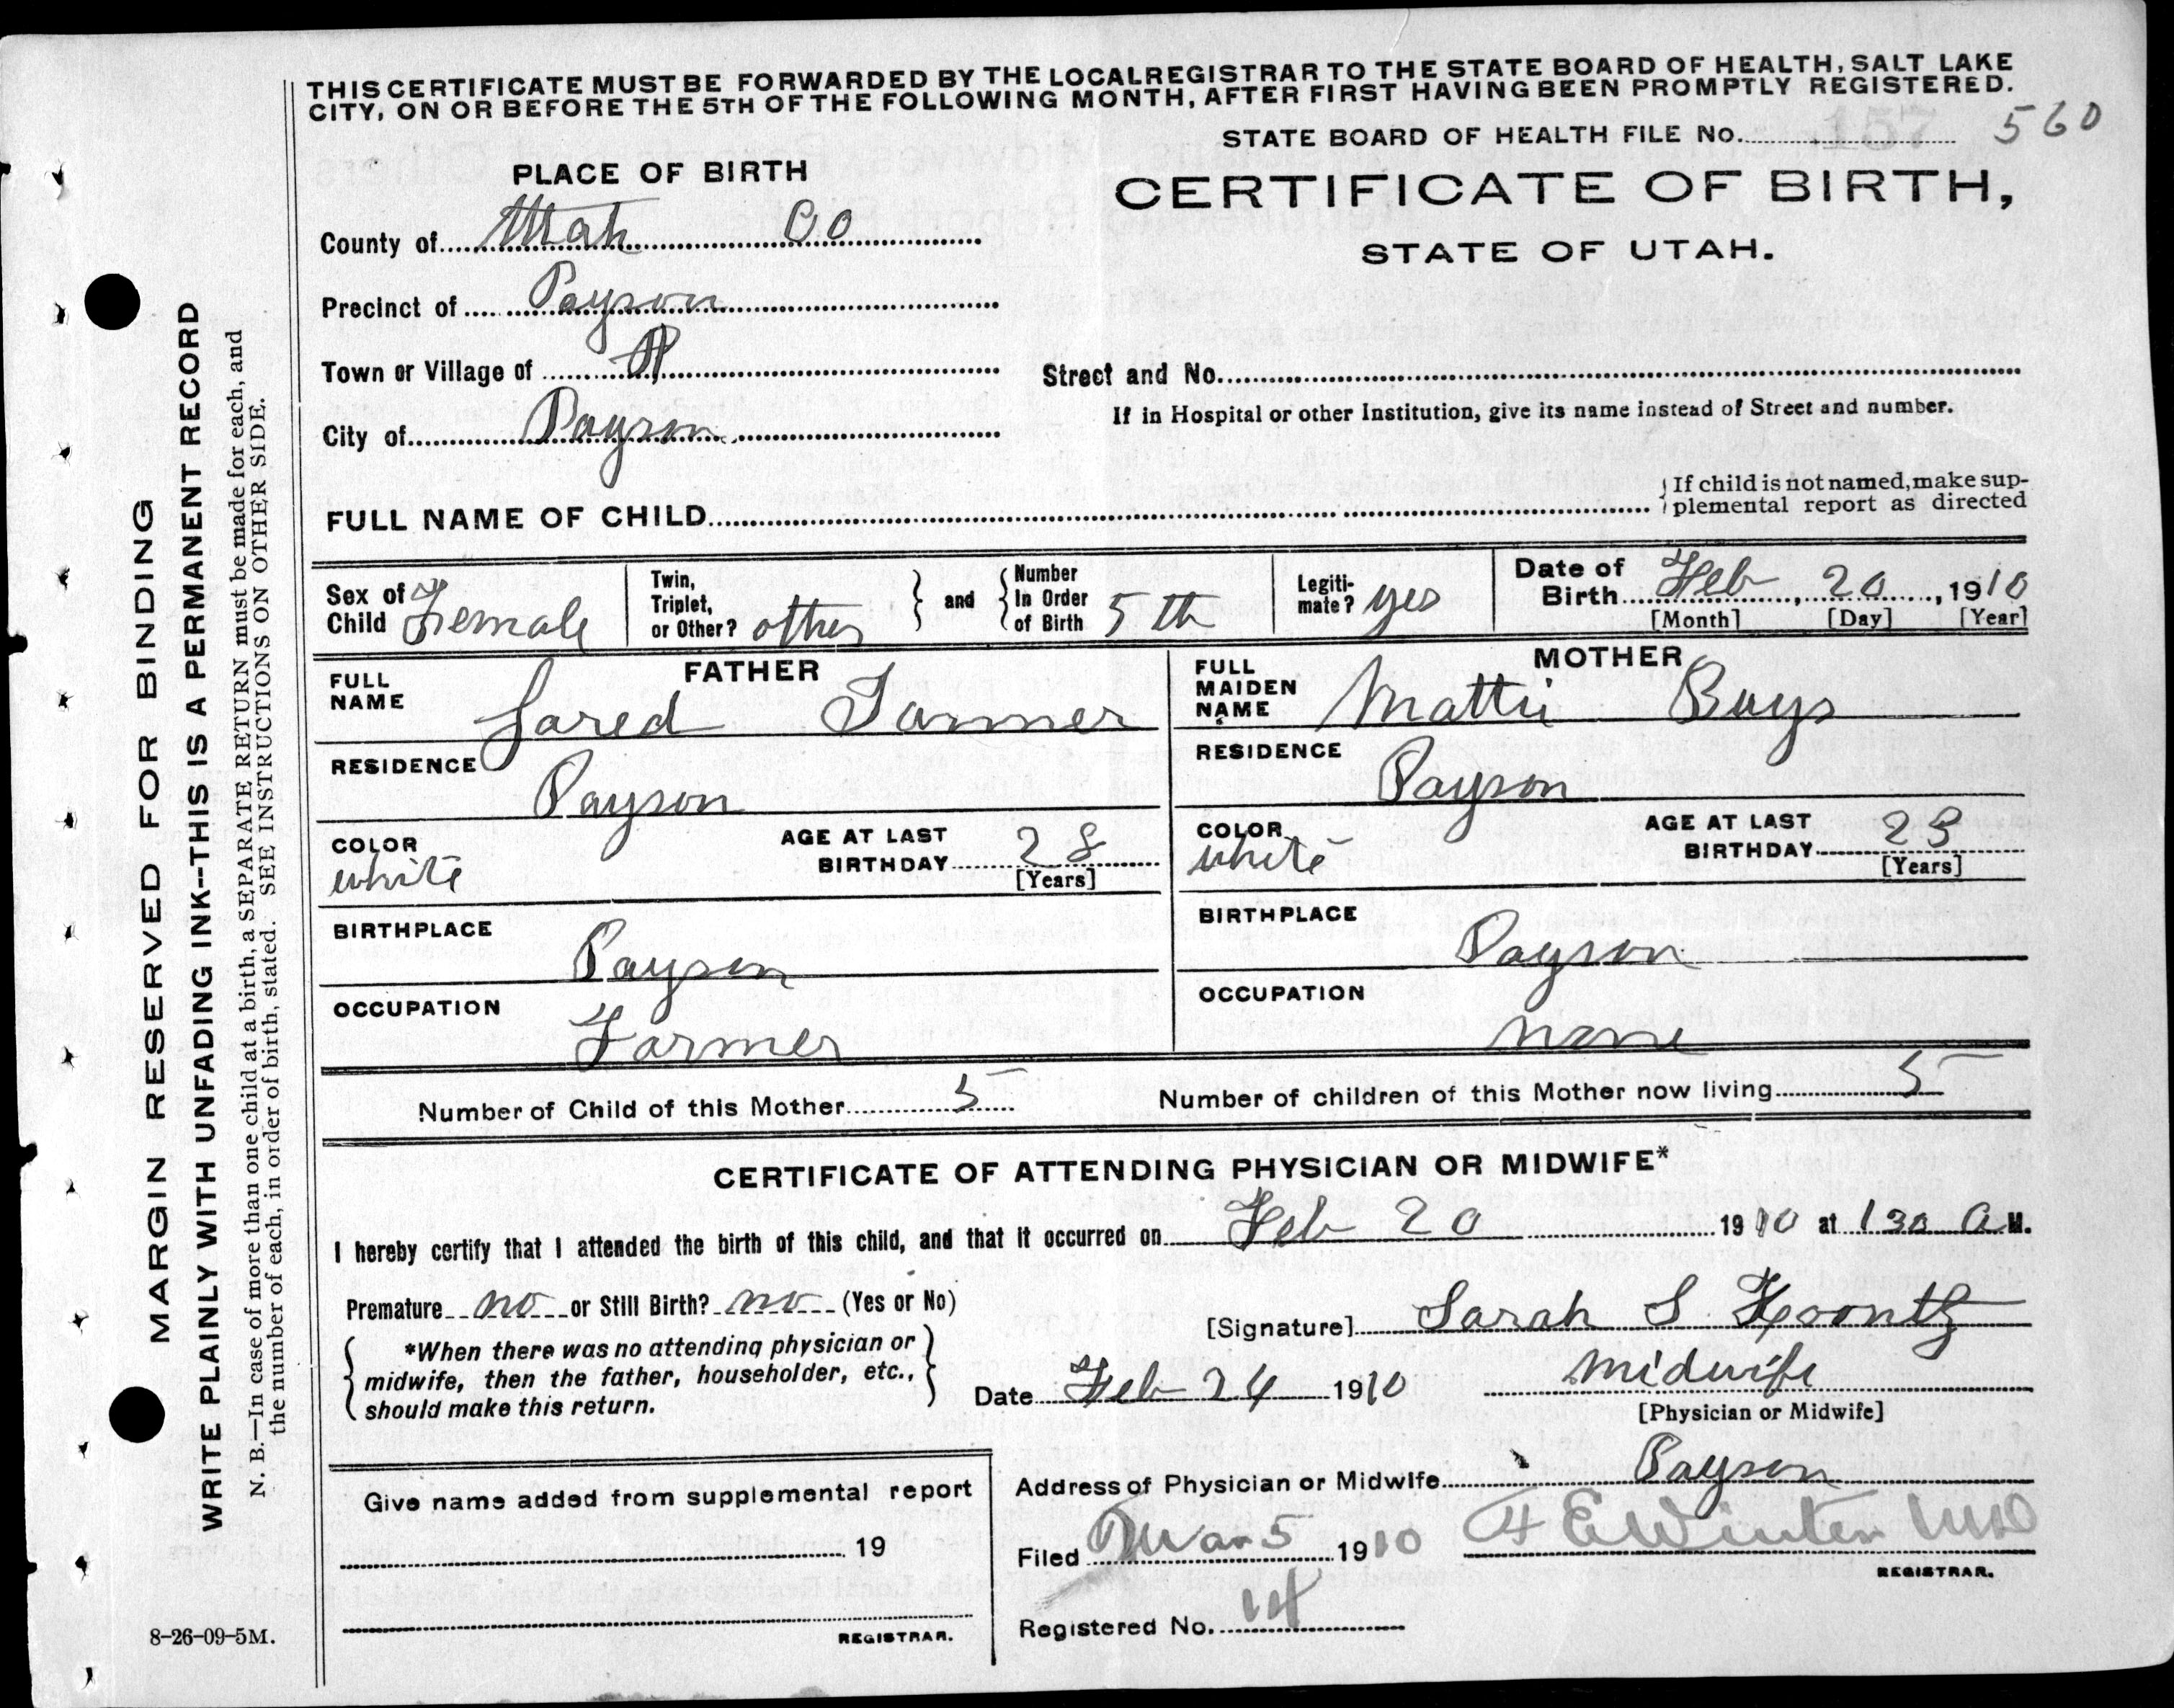 THIS CERTIFICATE MUST BE FORWARDED BY THE LOCAL REGISTRAR TO THE STATE BOARD OF HEALTH, SALT LAKE
CITY, ON OR BEFORE THE 5TH OF THE FOLLOWING MONTH, AFTER FIRST HAVING BEEN PROMPTLY REGISTERED.
STATE BOARD OF HEALTH FILE No. 157 560
PLACE OF BIRTH
CERTIFICATE OF BIRTH,
STATE OF UTAH.
County of Utah Co
Precinct of Payson
Town or Village of
Street and No.
If in Hospital or other Institution, give its name instead of Street and number.
City of Payson
FULL NAME OF CHILD
If child is not named, make sup-
plemental report as directed
Sex of Child Female
Twin, Triplet, or Other? other
and
Number In Order of Birth 5th
Legiti-mate? yes
Date of Birth Feb, 20, 1910
[Month] [Day] [Year]
FATHER
FULL NAME Jared Tanner
RESIDENCE Payson
COLOR white
AGE AT LAST BIRTHDAY 28
[Years]
BIRTHPLACE Payson
OCCUPATION Farmer
MOTHER
FULL MAIDEN NAME Mattie Buys
RESIDENCE Payson
COLOR white
AGE AT LAST BIRTHDAY 23
[Years]
BIRTHPLACE Payson
OCCUPATION none
Number of Child of this Mother 5
Number of children of this Mother now living 5
CERTIFICATE OF ATTENDING PHYSICIAN OR MIDWIFE*
I hereby certify that I attended the birth of this child, and that it occurred on Feb 20 1910 at 1 30 a M.
Premature no or Still Birth? no (Yes or No)
*When there was no attending physician or
midwife, then the father, householder, etc.,
should make this return.
[Signature] Sarah S Koontz
Date Feb 24 1910
midwife
[Physician or Midwife]
Address of Physician or Midwife Payson
Give name added from supplemental report
19
REGISTRAR.
Filed Mar 5 1910 Winter MD
REGISTRAR.
Registered No. 14
8-26-09-5M.
MARGIN RESERVED FOR BINDING
WRITE PLAINLY WITH UNFADING INK--THIS IS A PERMANENT RECORD
N. B.—In case of more than one child at a birth, a SEPARATE RETURN must be made for each, and
the number of each, in order of birth, stated. SEE INSTRUCTIONS ON OTHER SIDE.